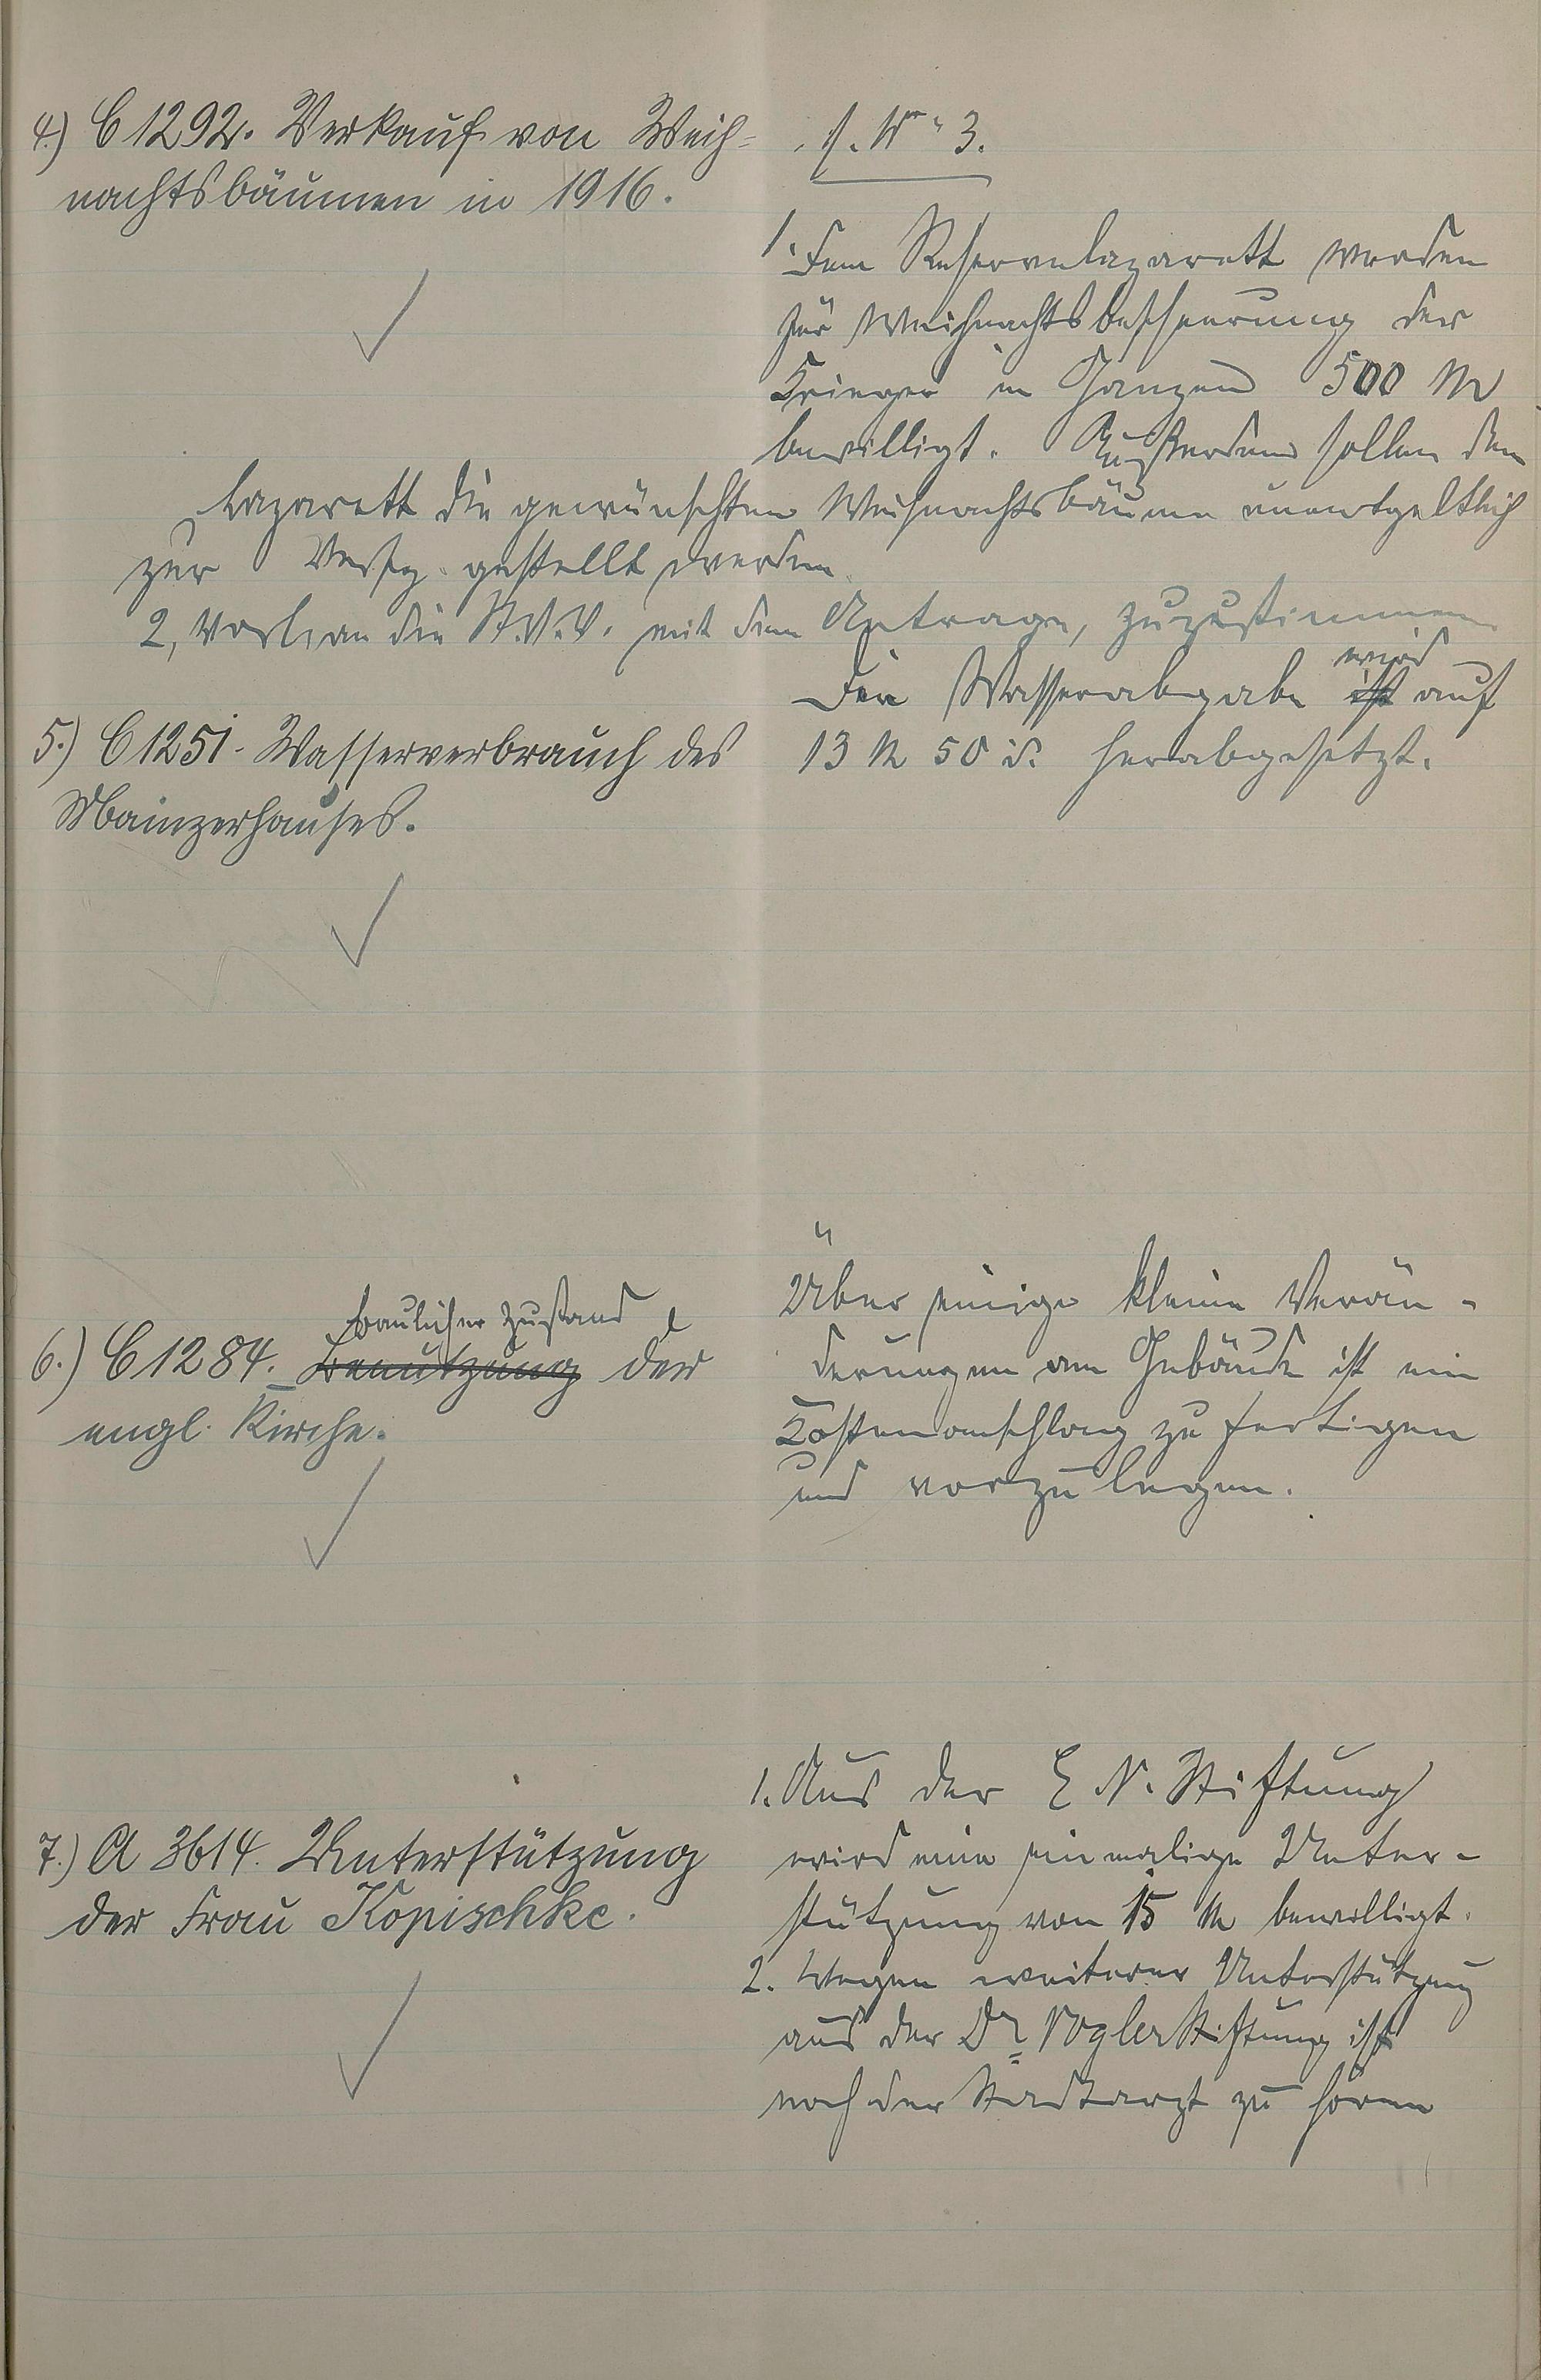 4.) C 1292. Verkauf von Weih-
nachtsbäumen in 1916.
s. Nr. 3.
1. Dem Reservelazarett werden
zur Weihnachtsbescheerung der
Krieger im Ganzen 500 M
bewilligt. Außerdem sollen dem
Lazarett die gewünschten Weihnachtsbäume unentgeltlich
zur Verfg. gestellt werden.
2, Vorl. an die St.V.V. mit dem Antrage, zuzustimmen.
5.) C 1251. Wasserverbrauch des
Mainzerhauses.
Die Wasserabgabe ist wird auf
13 M 50 d. herabgesetzt.
6.) C 1284. Benutzung baulicher Zustand der
engl. Kirche.
Über einige kleine Verän-
derungen am Gebäude ist ein
Kostenanschlag zu fertigen
und vorzulegen.
7.) A 3614. Unterstützung
der Frau Kopischke.
1. Aus der E N. Stiftung
wird eine einmalige Unter-
stützung von 15 M bewilligt.
2. Wegen weiterer Unterstützung
aus der Dr. Vogler Stiftung ist
noch der Stadtarzt zu hören